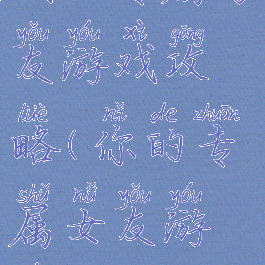 yǒu yóu xì gōng
友游戏攻
lüè nǐ de zhuān
略(你的专
shǔ nǚ yǒu yóu
属女友游